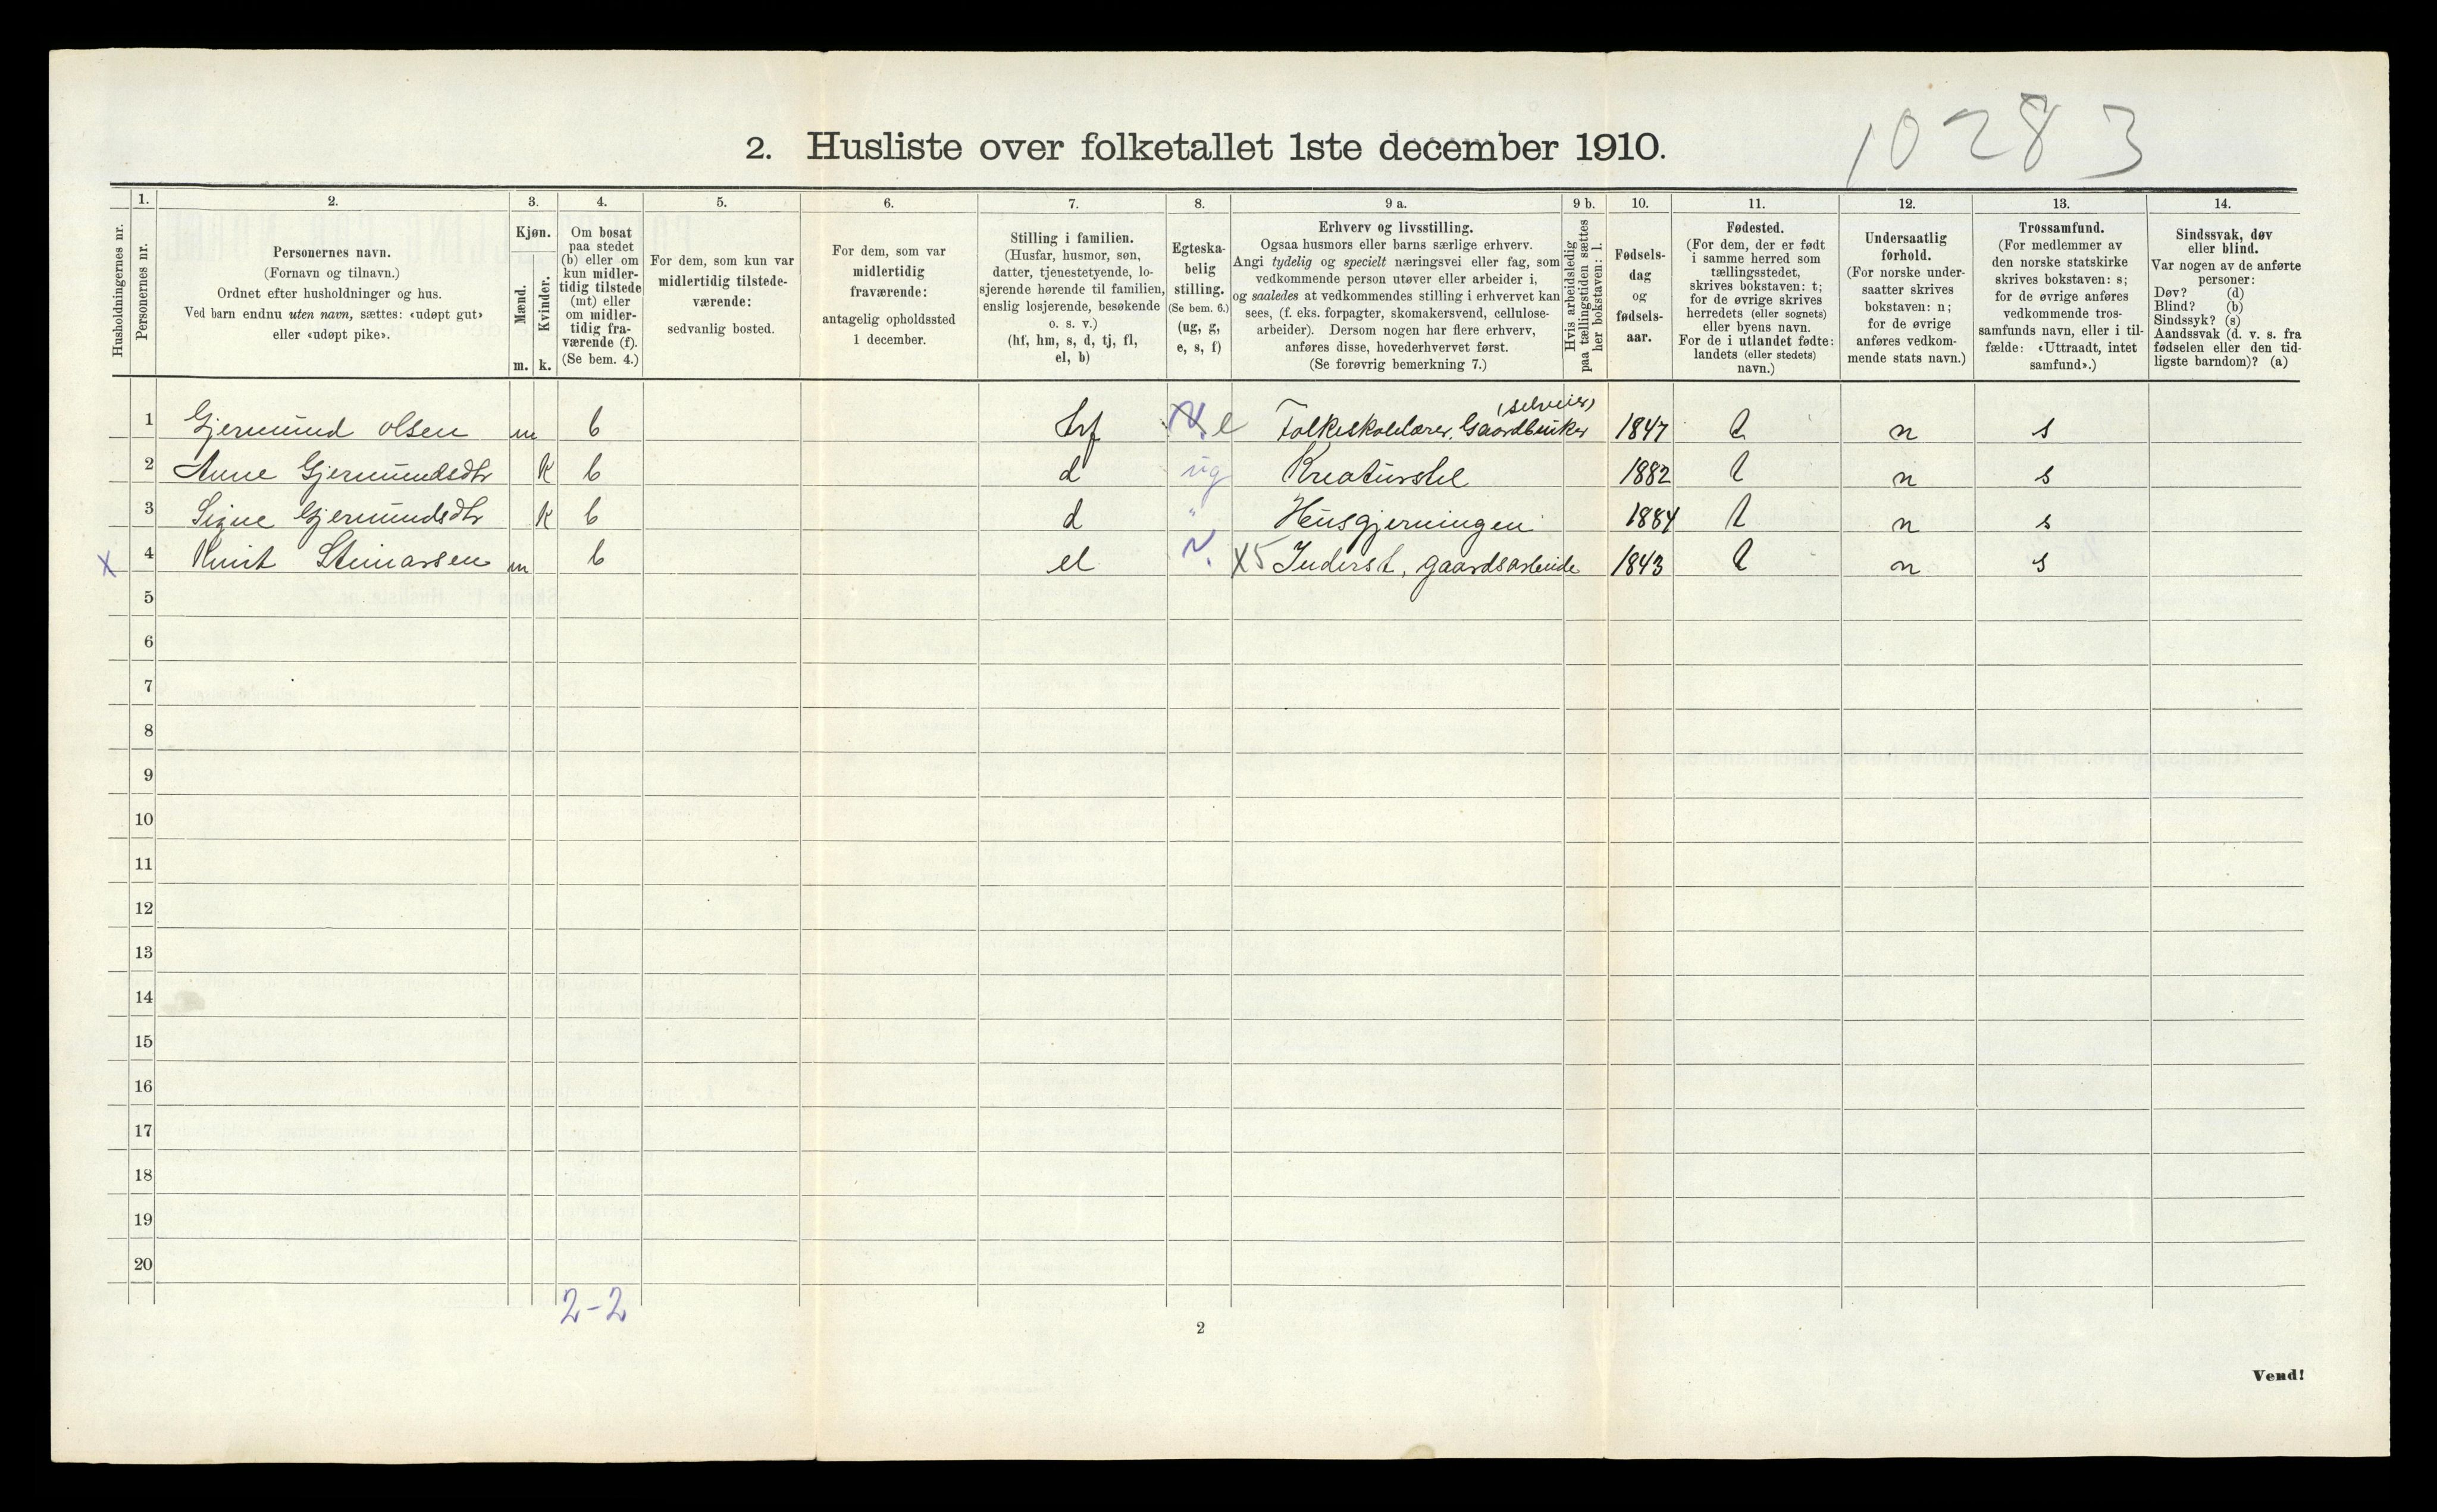 10283
2. Husliste over folketallet 1ste december 1910.
Husholdningernes nr.
1.
Personernes nr.
2.
Personernes navn.
(Fornavn og tilnavn.)
Ordnet efter husholdninger og hus.
Ved barn endnu uten navn, sættes: «udøpt gut»
eller «udøpt pike».
3.
Kjøn.
Mænd.
Kvinder.
m. k.
4.
Om bosat
paa stedet
(b) eller om
kun midler-
tidig tilstede
(mt) eller
om midler-
tidig fra-
værende (f).
(Se bem. 4.)
5.
For dem, som kun var
midlertidig tilstede-
værende:
sedvanlig bosted.
6.
For dem, som var
midlertidig
fraværende:
antagelig opholdssted
1 december.
7.
Stilling i familien.
(Husfar, husmor, søn,
datter, tjenestetyende, lo-
sjerende hørende til familien,
enslig losjerende, besøkende
o. s. v.)
(hf, hm, s, d, tj, fl,
el, b)
8.
Egteska-
belig
stilling.
(Se bem. 6.)
(ug, g,
e, s, f)
9 a.
Erhverv og livsstilling.
Ogsaa husmors eller barns særlige erhverv.
Angi tydelig og specielt næringsvei eller fag, som
vedkommende person utøver eller arbeider i,
og saaledes at vedkommendes stilling i erhvervet kan
sees, (f. eks. forpagter, skomakersvend, cellulose-
arbeider). Dersom nogen har flere erhverv,
anføres disse, hovederhvervet først.
(Se forøvrig bemerkning 7.)
9 b.
Hvis arbeidsledig
paa tællingstiden sættes
her bokstaven: l.
10.
Fødsels-
dag
og
fødsels-
aar.
11.
Fødested.
(For dem, der er født
i samme herred som
tællingsstedet,
skrives bokstaven: t;
for de øvrige skrives
herredets (eller sognets)
eller byens navn.
For de i utlandet fødte:
landets (eller stedets)
navn.)
12.
Undersaatlig
forhold.
(For norske under-
saatter skrives
bokstaven: n;
for de øvrige
anføres vedkom-
mende stats navn.)
13.
Trossamfund.
(For medlemmer av
den norske statskirke
skrives bokstaven: s;
for de øvrige anføres
vedkommende tros-
samfunds navn, eller i til-
fælde: «Uttraadt, intet
samfund».)
14.
Sindssvak, døv
eller blind.
Var nogen av de anførte
personer:
Døv? (d)
Blind? (b)
Sindssyk? (s)
Aandssvak (d. v. s. fra
fødselen eller den tid-
ligste barndom)? (a)
(selveier)
1 Gjermund Olsen m b hf e Folkeskolelærer, Gaardbruker 1847 t n s
2 Anne Gjermundsdtr k b d ug Kreaturstel 1882 t n s
3 Signe Gjermundsdtr k b d " Husgjerningen 1884 t n s
X 4 Knut Steinarssen m b el X5 Inderst, gaardsarbeide 1843 t n s
5
6
7
8
9
10
11
12
13
14
15
16
17
18
19
20
2-2
2
Vend!